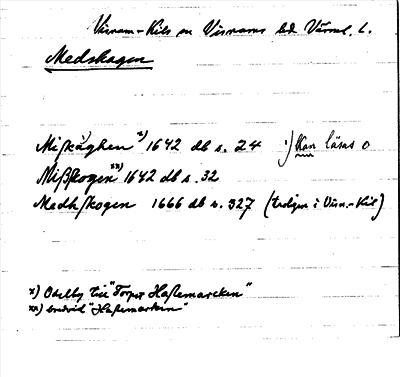 Visnum-Kils sn Visnums hd Värml. l.
Medskogen
Miskåghen x) 1642 db s. 24 1) Kan läsas o
Misskogen xx) 1642 db s. 32
Medhskogen 1666 db s. 327 (troligen i Visn.-Kil)
x) Ödelby till "Torpet Hassemarcken"
xx) bredvid "Hassemarken"